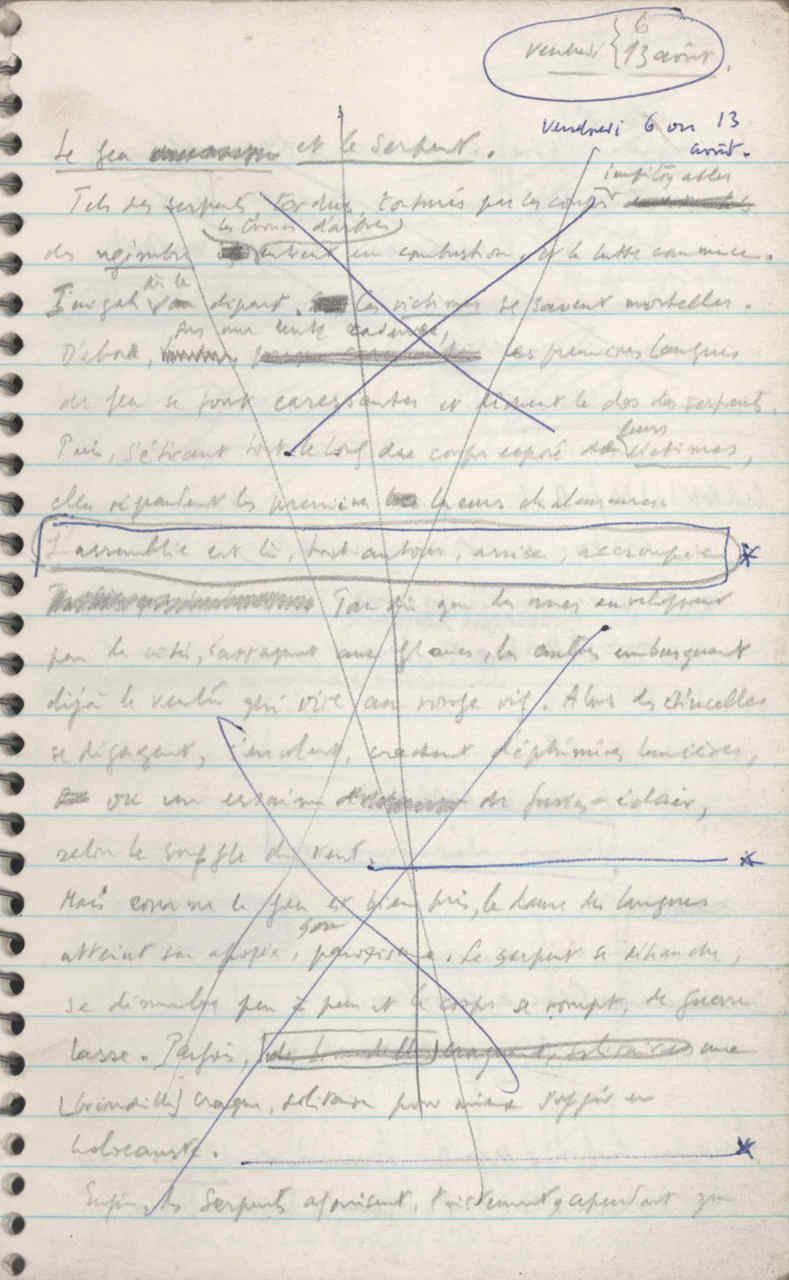 6
vendredi { 13 août.
Vendredi 6 ou 13
août.
Le feu et le serpent.
impitoyables
Tels des serpents tordus, torturés par les coups
les troncs d'arbres
des entrent en combustion, et la lutte commence.
dès le
Inégal départ. les victimes se savent mortelles.
sur une lente cadence,
D'abord, les premières langues
de feu se font caressantes et lèchent le dos des serpents.
leurs
Puis, s'étirant tout le long du corps exposé de victimes,
elles répandent les premières lueurs chaleureuses.
L'assemblée est là, tout autour, assise, accroupie
Tandis que les unes enveloppent
par le côté, s'attaquant aux flancs, les autres embusquent
déjà le ventre qui vire au rouge vif. Alors des étincelles
se dégagent, s'envolent, crachant d'éphémères lumières,
ou un essaim de fusées-éclair,
selon le souffle du vent.
Mais comme le feu est bien pris, la danse des langues
son
atteint son apogée, paroxisme. Le serpent se déhanche,
se démembre peu à peu et le corps se rompt, de guerre
lasse. Parfois, des brindilles craquent, solitaires une
[brindille] craque, solitaire pour mieux s'offrir en
holocauste.
Enfin, les serpents agonisent, cependant que